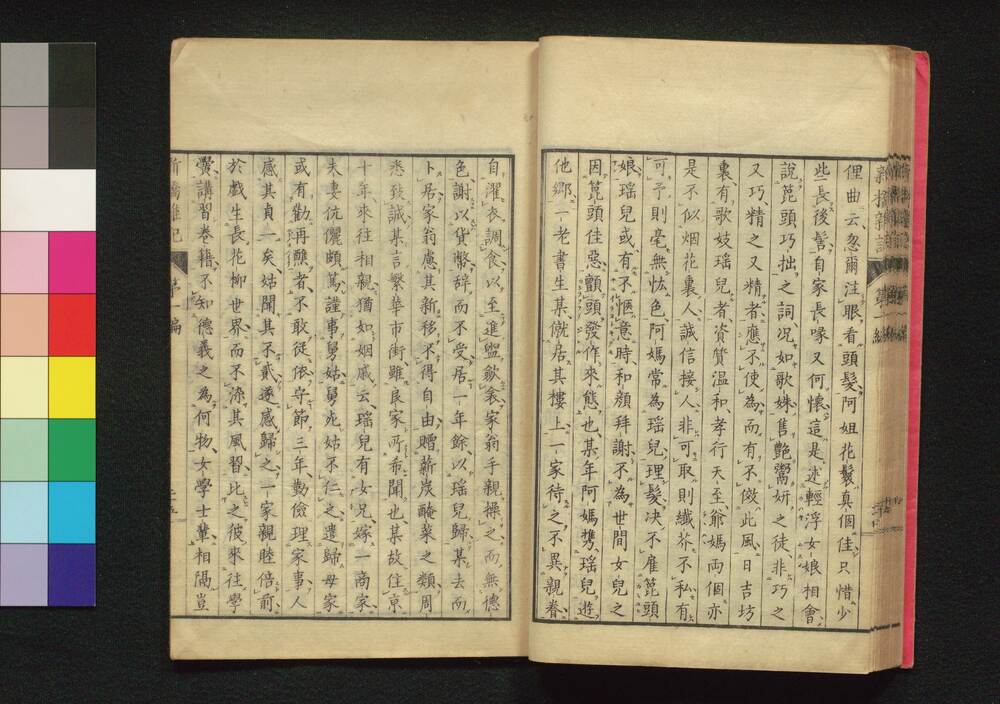 俚曲云忽爾注眼看頭髮阿姐花鬟真個佳只惜少
些長後髻自家長喙又何懷這是述輕浮女娘相會
說箆頭巧拙之詞况如歌妹售艷鬻妍之徒非巧之
又巧精之又精者應不使為而有不倣此風日吉坊
裏有歌妓瑶兒者資質温和孝行天至爺媽両個亦
是不似烟花裏人誠信接人非可取則纖芥不私有
可予則毫無恡色阿媽常為瑶兒理髮决不雇箆頭
娘瑶兒或有不愜意時和顔拜謝不為世間女兒之
因箆頭佳惡顫頭發作來態也某年阿媽携瑶兒遊
他郷一老書生某僦居其樓上一家待之不異親眷
自濯衣調食以至進盥歛衾家翁手親操之而無德
色謝以貨幣辞而不受居一年餘以瑶兒歸某去而
卜居家翁慮其新移不得自由贈薪炭醃菜之類周
悉致誠某言繁華市街雖良家所希聞也某故住京
十年來往相親猶如姻戚云瑶兒有女兄嫁一商家
夫妻伉儷頗篤謹事舅姑舅尤姑不仁之遣歸母家
或有勸再醮者不敢従依守節三年勤儉理家事人
感其貞一矣姑聞其不貳遂感歸之一家親睦倍前
於戲生長花柳世界而不染其風習比之彼來往學
黌講習卷籍不知德義之為何物女學士輩相隔豈